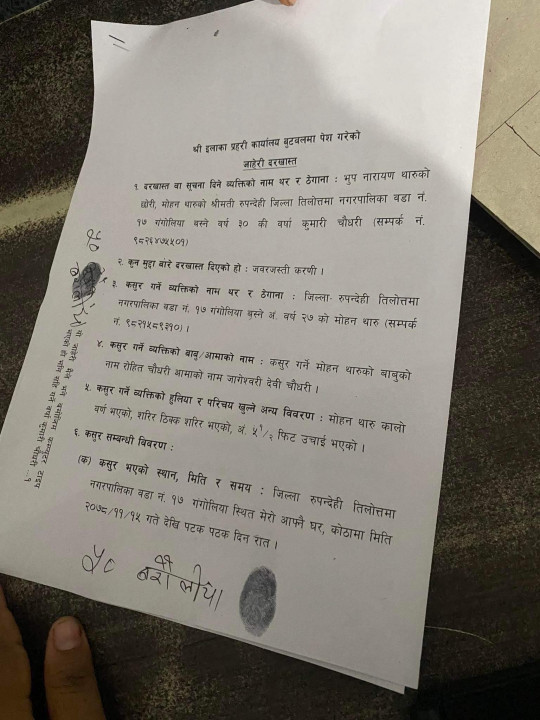 श्री इलाका प्रहरी कार्यालय बुटवलमा पेश गरेको
जाहेरी दरखास्त
१. दरखास्त वा सूचना दिने व्यक्तिको नाम थर र ठेगाना : भुप नारायण थारुको
छोरी, मोहन थारुको श्रीमती रुपन्देही जिल्ला तिलोत्तमा नगरपालिका वडा नं.
१७ गंगोलिया बस्ने वर्ष ३० की वर्षा कुमारी चौधरी (सम्पर्क नं.
९८२६४७५५०१)
२. कुन मुद्दा बारे दरखास्त दिएको हो : जवरजस्ती करणी ।
३. कसुर गर्ने व्यक्तिको नाम थर र ठेगाना : जिल्ला- रुपन्देही तिलोत्तमा
नगरपालिका वडा नं. १७ गंगोलिया बस्ने अं. वर्ष २७ को मोहन थारु (सम्पर्क
नं. ९८२१५८९३१०) ।
४. कसुर गर्ने व्यक्तिको बाबु/आमाको नाम : कसुर गर्ने मोहन थारुको बाबुको
नाम रोहित चौधरी आमाको नाम जागेश्वरी देवी चौधरी ।
५. कसुर गर्ने व्यक्तिको हुलिया र परिचय खुल्ने अन्य विवरण : मोहन थारु कालो
वर्ण भएको, शरिर ठिक्क शरिर भएको, अं. ५ १/२ फिट उचाई भएको ।
६. कसुर सम्बन्धी विवरण :
(क) कसुर भएको स्थान, मिति र समय : जिल्ला रुपन्देही तिलोत्तमा
नगरपालिका वडा नं. १७ गंगोलिया स्थित मेरो आफ्नै घर, कोठामा मिति
२०७८/११/१५ गते देखि पटक पटक दिन रात ।